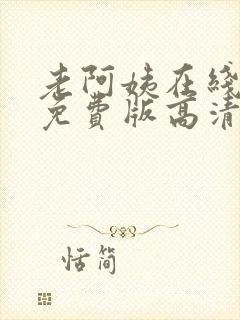 老阿姨在线
免费版高清
恬简